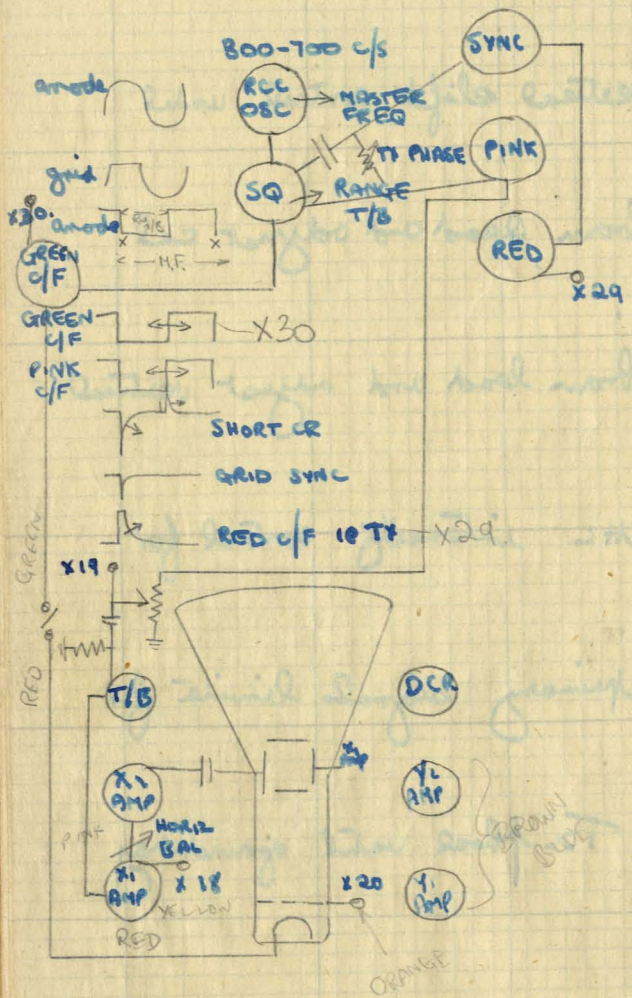 800-700 C/S
SYNC
anode
RCC
OSC
MASTER
FREQ
TX PHASE
PINK
grid
SQ
RANGE
T/B
X30.
anode
GREEN
C/F
M.F.
RED
X29
GREEN
C/F
X30
PINK
C/F
SHORT CR
GRID SYNC
RED C/F
TX
X29
X19
GREEN
RED
T/B
DCR
X2
AMP
Y2
AMP
HORIZ
BAL
PINK
BROWN
BLUE
X1
AMP
X18
X20
Y1
AMP
YELLOW
RED
ORANGE